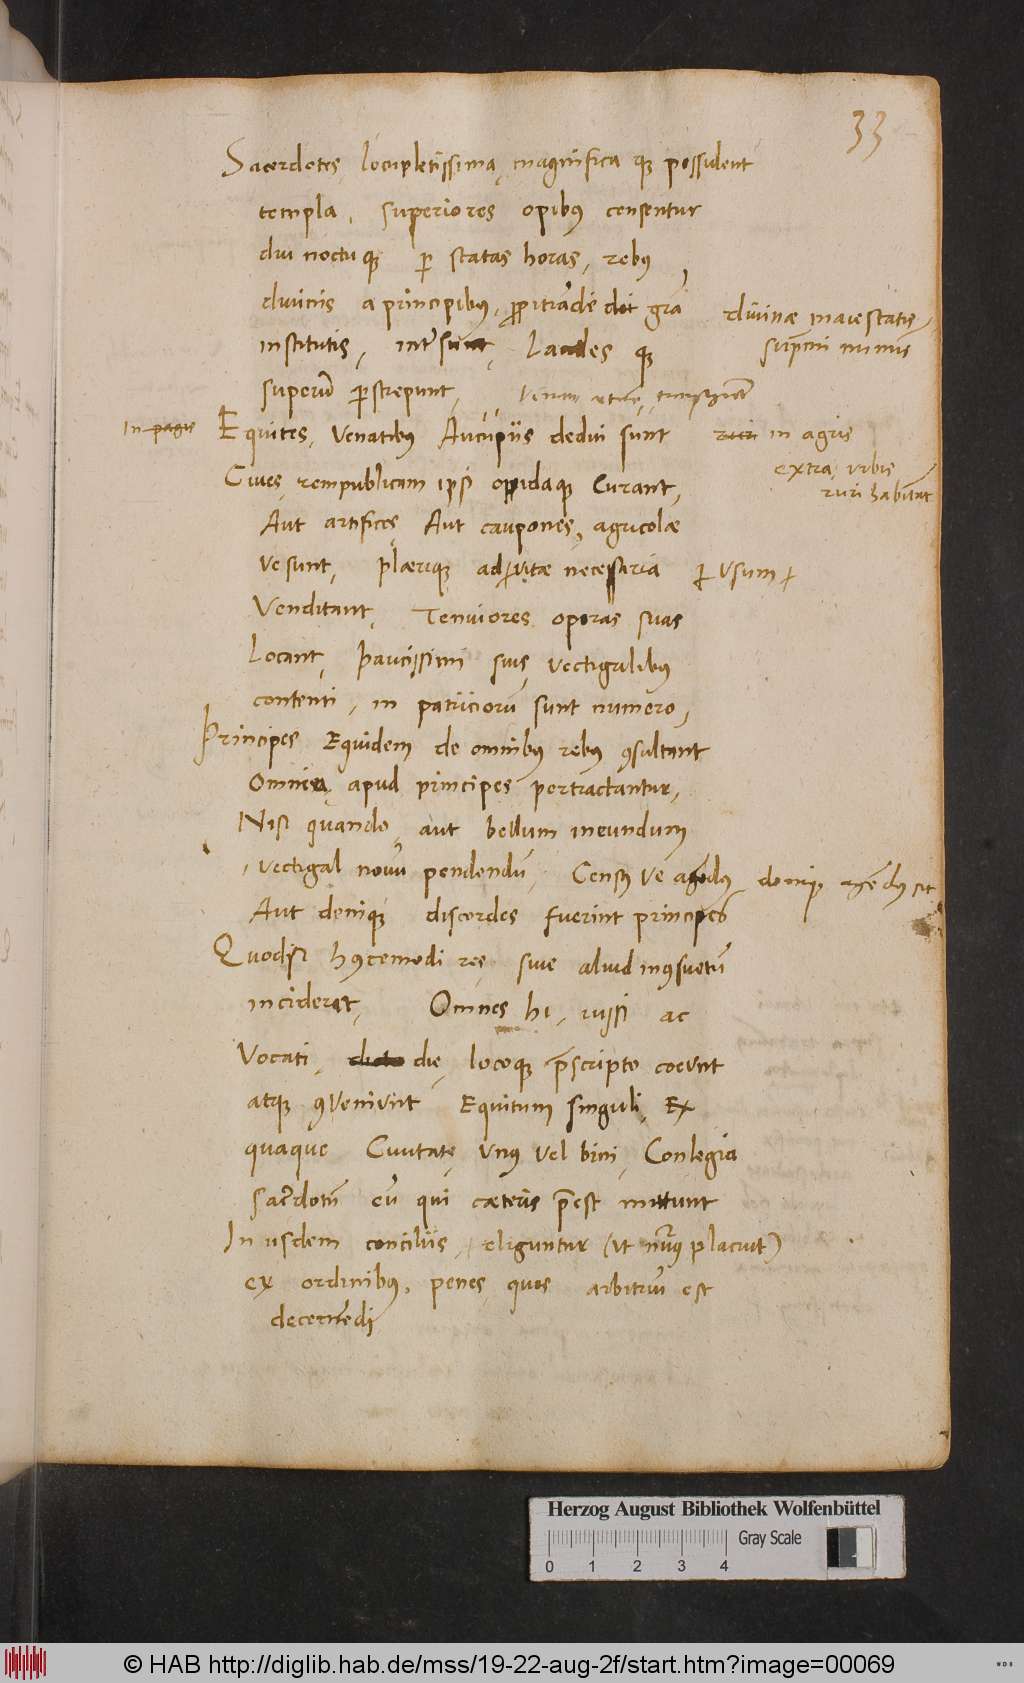 33
Sacerdotes locupletissima, magnifica q; possident
templa, superiores opibus censentur
diu noctu q; per statas horas, rebus
divinis a principibus,
institutis, intersunt, Laudes q;
superum perstrepunt,
divinae maiestatis
supremi numinis
In pagis Equites, Venatibus Aucupiis dedivi sunt ruri in agris
extra urbis
ruri habitant
Cives rempublicam ipsi opidaq; Curant,
Aut artifices Aut caupones, agricolae
ve sunt, plaeriq; ad vitae necessaria usum
Venditant, Tenuiores operas suas
Locant, paucissimi suis vectigalibus
contenti, in patriciorum sunt numero,
Principes Equidem de omnibus rebus consultant
Omnia apud principes pertractantur,
Nisi quando aut bellum ineundum
vectigal novum pendendum, Census ve agendus
Aut deniq; discordes fuerint principes
Quodsi huscemodi res sive aliud inconsuetum
inciderit, Omnes hi, iussi ac
Vocati, dicto die, locoq; praescripto coeunt
atq; conveniunt Equitum singuli, Ex
quaque Civitate unus vel bini, Conlegia
sacerdotum eum qui caeteris praeest mittunt
In iisdem conciliis, eliguntur (ut placuit)
ex ordinibus, penes quos arbitrium est
decernendi
Herzog August Bibliothek Wolfenbüttel
Gray Scale
0 1 2 3 4
© HAB http://diglib.hab.de/mss/19-22-aug-2f/start.htm?image=00069